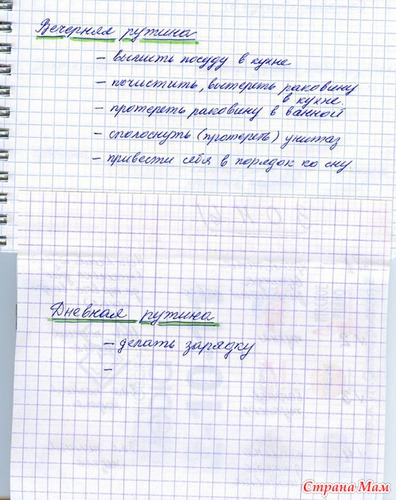 Вечерняя рутина
- вымыть посуду в кухне
- почистить, вытереть раковину
в кухне.
- протереть раковину в ванной
- сполоснуть (протереть) унитаз
- привести себя в порядок ко сну
Дневная рутина
- делать зарядку
-
Страна Мам